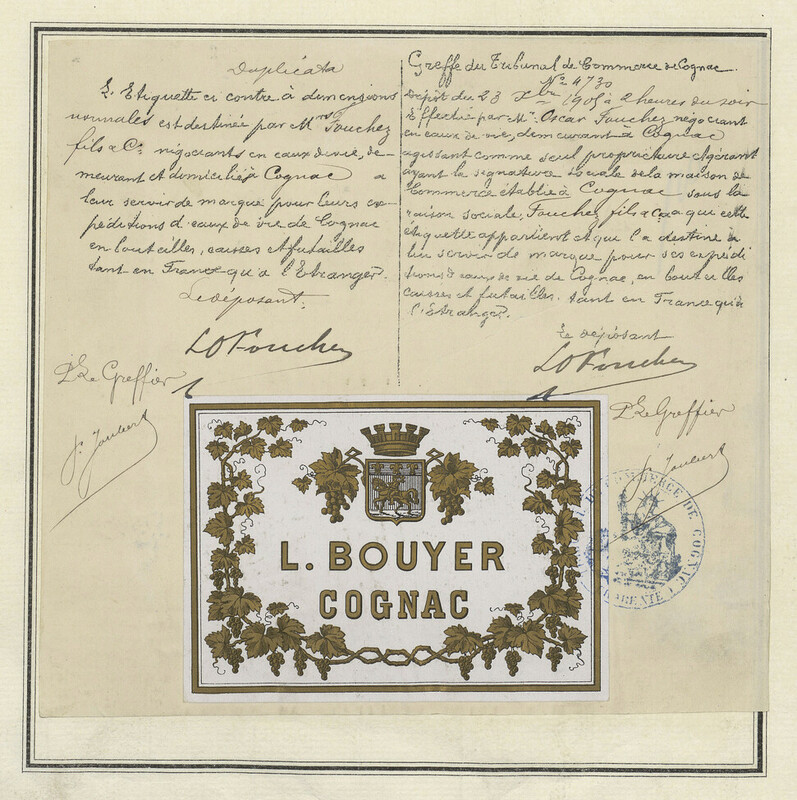 Duplicata
L'Etiquette ci contre à dimensions
normales est destinée par Mrs Fouchez
fils & Cie négociants en eaux de vie, de-
meurant et domiciliés à Cognac a
leur servir de marque pour leurs ex-
péditions d'eaux de vie de Cognac
en bouteilles, caisses et futailles
tant en France qu'à l'Etranger.
Le déposant.
Pr Le Greffier
Greffe du Tribunal de Commerce de Cognac.
No 4730
Dépot du 23 Xbre 1905 à 2 heures du soir
Effectué par Mr Oscar Fouchez négociant
en eaux de vie, demeurant à Cognac
agissant comme seul propriétaire & gérant
ayant la signature sociale de la maison de
Commerce établie à Cognac sous la
raison sociale, Fouchez fils & Cie à qui cette
étiquette appartient et qui l'a destine à
lui servir de marque pour ses expédi
tions d'eaux de vie de Cognac, en bouteilles
caisses et futailles. tant en France qu'à
l'Etranger.
Le déposant
Pr Le Greffier
L. BOUYER
COGNAC
COMMERCE DE COGNAC
CHARENTE